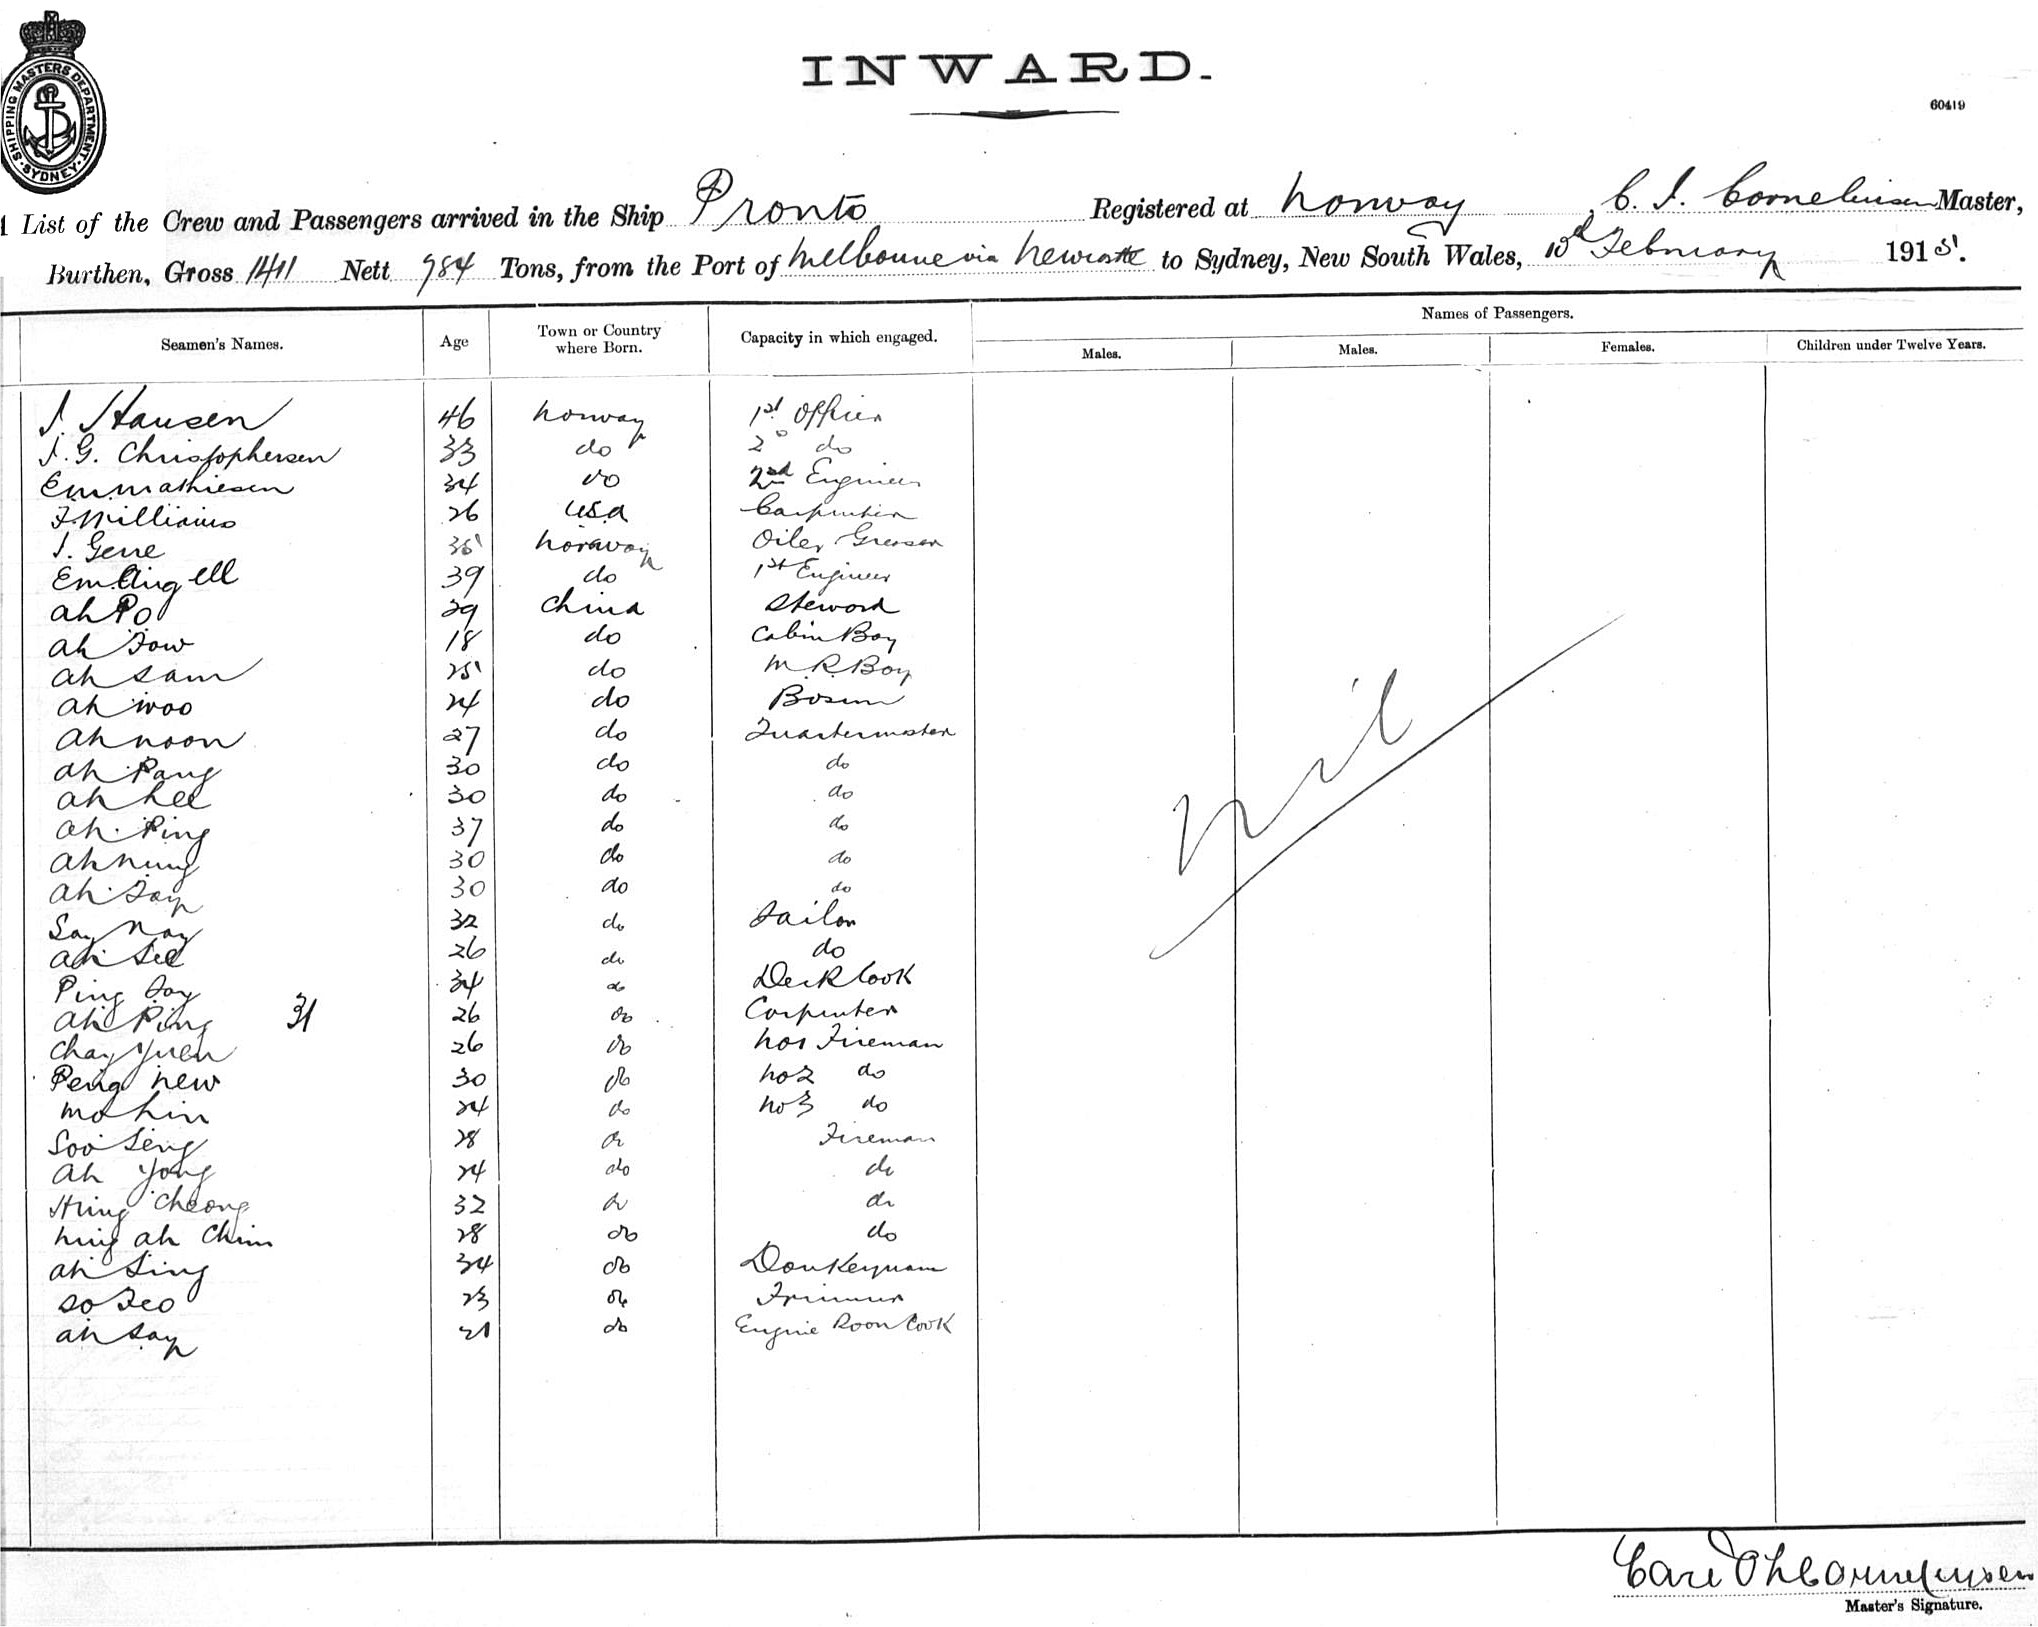 SHIPPING MASTERS DEPARTMENT. SYDNEY.
INWARD.
60419
List of the Crew and Passengers arrived in the Ship Pronto Registered at Norway, C. J. Corneliussen Master,
Burthen, Gross 1411 Nett 984 Tons, from the Port of Melbourne via Newcastle to Sydney, New South Wales, February 1915.
Names of Passengers.
Seamen's Names. Age Town or Country where Born. Capacity in which engaged. Males. Males. Females. Children under Twelve Years.
J. Hansen 46 Norway 1st Officer
J. G. Christophersen 33 do 2° do
E.M. Mathiesen 34 do 2nd Engineer
F. Williams 26 USA Carpenter
J. Gene 35 Norway Oiler Greaser
39 do 1st Engineer
Ah Po 29 China Steward
Ah Fow 18 do Cabin Boy
Ah Sam 25 do M.R. Boy
Ah Woo 24 do Bosun
Ah Noon 27 do Quartermaster
Ah Pang 30 do do
Ah Lee 30 do do
Ah Ping 37 do do
Ah Nung 30 do do
Ah Fay 30 do do
Say Nay 32 do Sailor
Ah See 26 do do
Ping Say 34 do Deck Cook
Ah Ping 31 26 do Carpenter
Chay Yuen 26 do No1 Fireman
Peng New 30 do No2 do
Mo Lin 24 do No3 do
Soo Seng 28 do Fireman
Ah Yong 24 do do
Hing Cheong 32 do do
Ning Ah Chim 28 do do
Ah Sing 34 do Donkeyman
So Feo 23 do Trimmer
Ah Say 21 do Engine Room Cook
Nil
Corneliussen
Master's Signature.